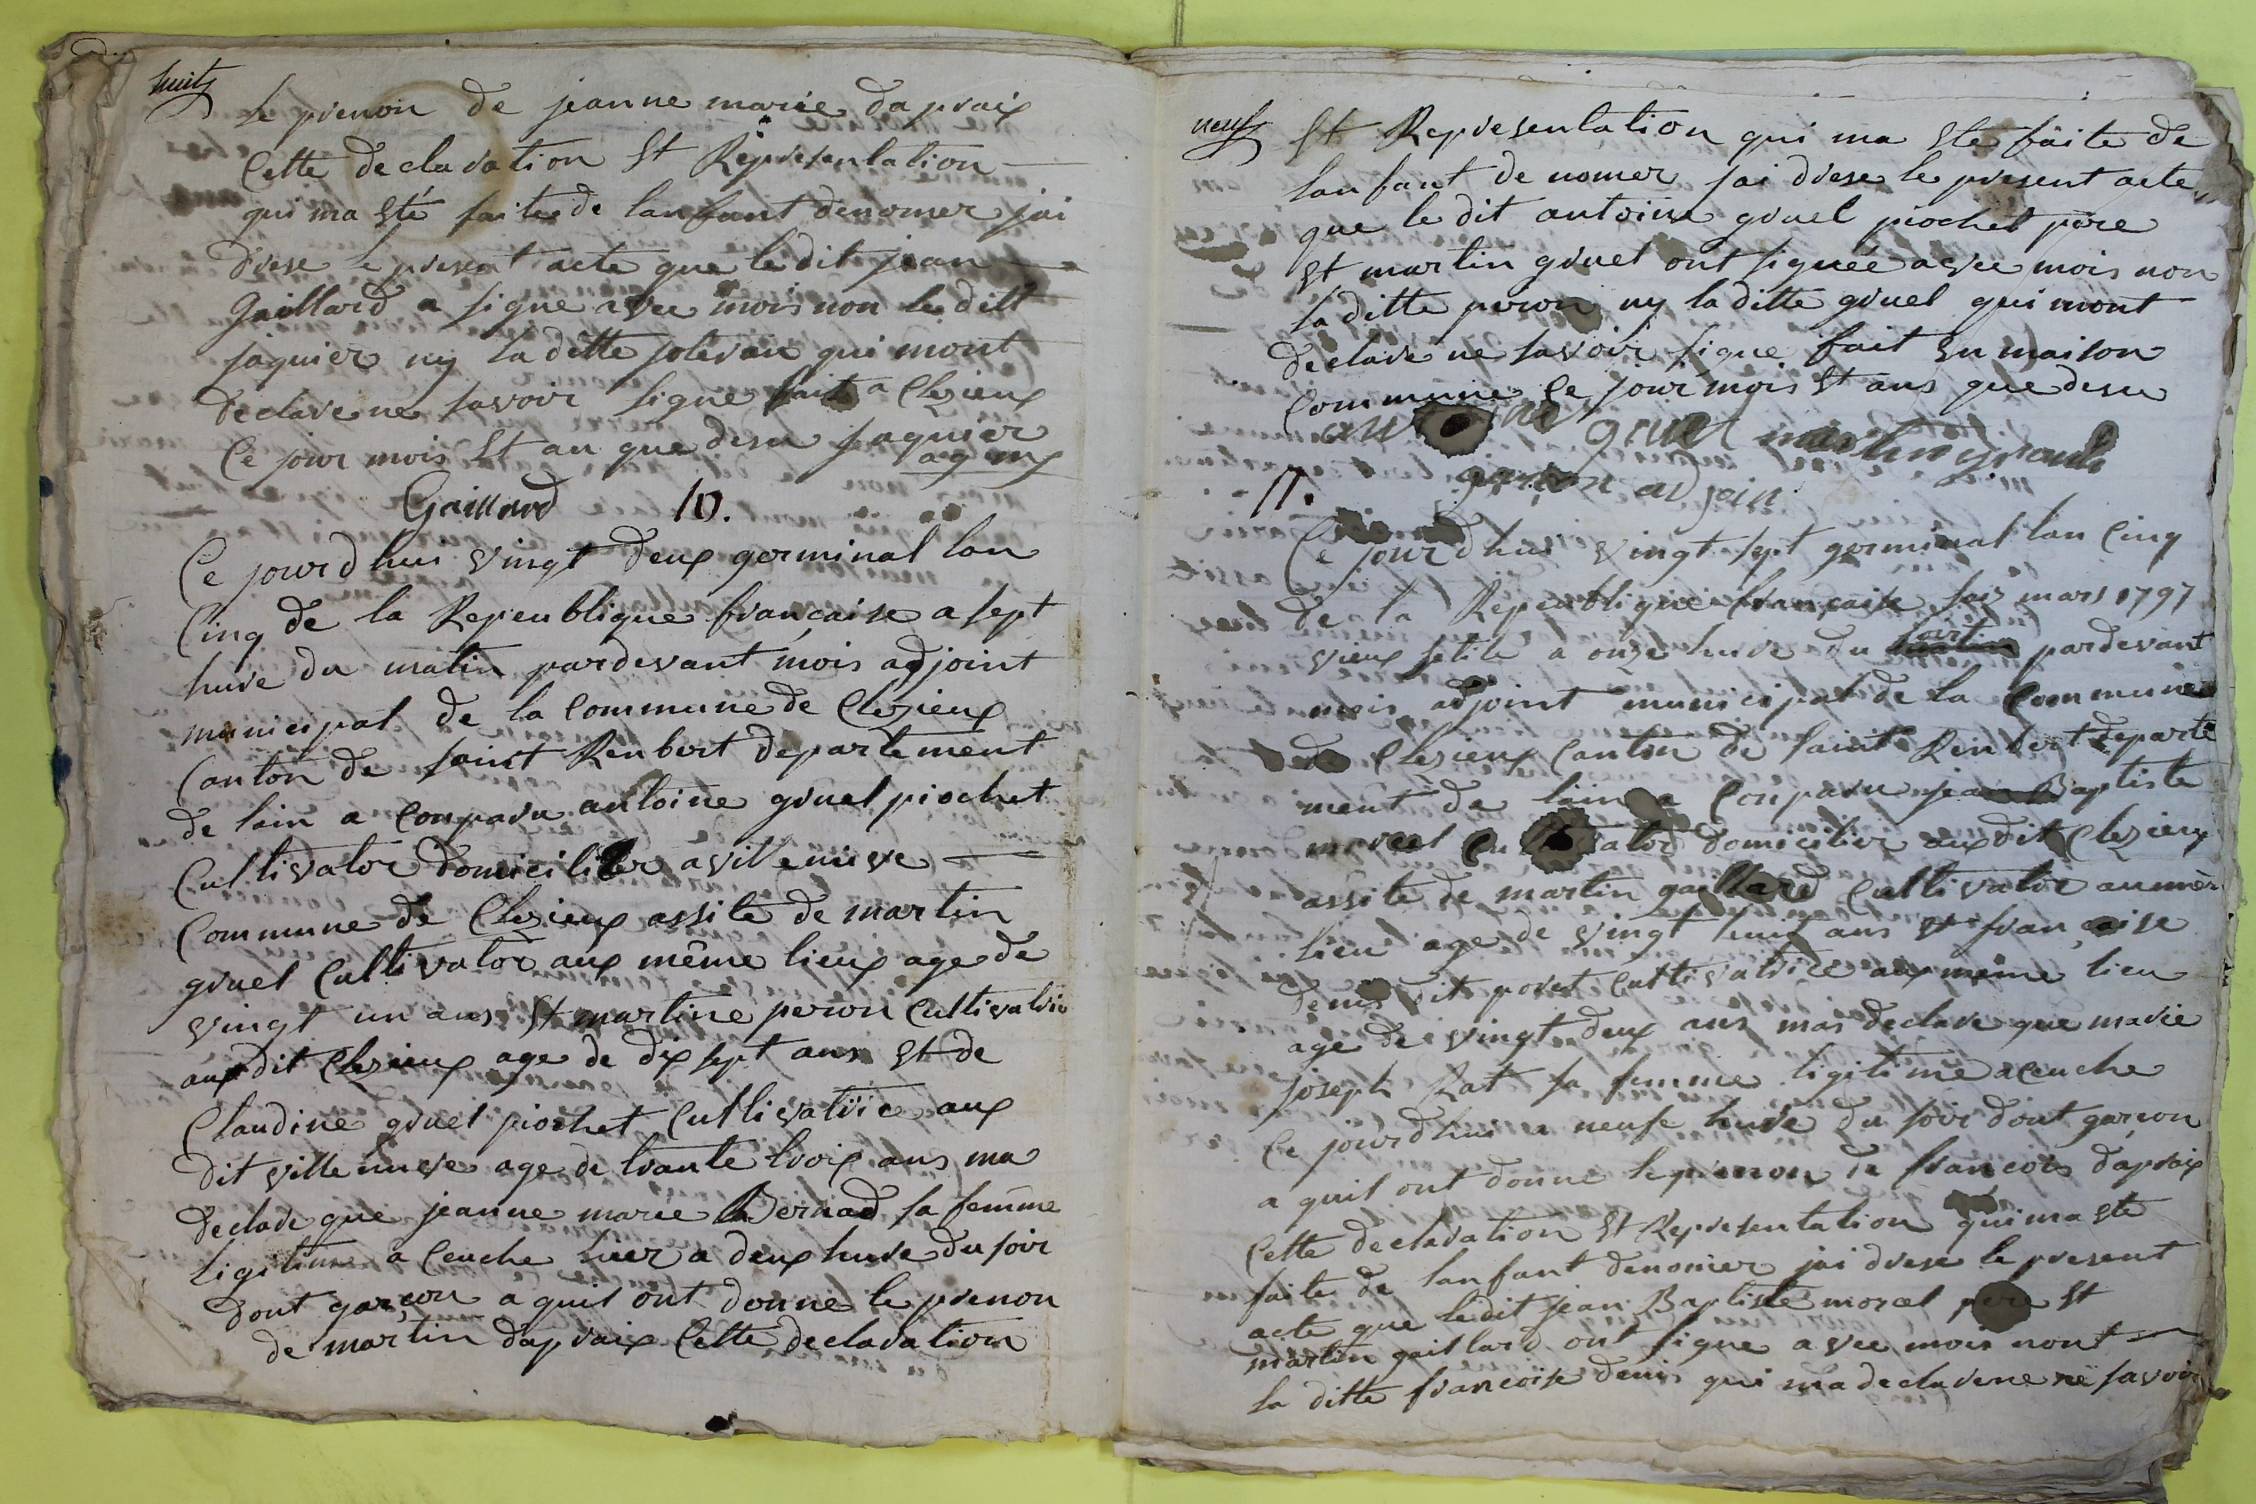 huits
le prenon de jeanne marie dapraix
Cette declaration Et Representation
qui ma Eté faites de lanfant denomer jai
drese le present acte que le dit jean
Gaillard a signe avec mois non le ditt
jaquier ny la ditte joleran qui mont
declare ne savoir signe fait a Clezieux
Ce jour mois Et an que desu jaquier
Gaillard
10.
Ce jourdhui vingt deux germinal lan
Cinq de la Repeublique française a sept
hure du matin pardevant mois adjoint
municipal de la Commune de Clezieux
Canton de saint Renbert departement
de lain a Conparu antoine gruel piochet
Cultivator domicilier a villenuve
Commune de Clezieux assite de martin
gruel Cultivator aux même lieux age de
vingt un ans Et martine peron Cultivatric
aux dit Clezieux age de dix sept ans Et de
Claudine gruel piochet Cultivatrice aux
dit villenuve age de trante troix ans ma
declare que jeanne marie Bernad sa femme
ligitime a Ceuche hier a deux hure du soir
dont garçon a quil ont donne le prenon
de martin dapraix Cette declaration
neufs
Et Representation qui ma Ete faite de
lanfant de nomer jai drese le present acte
que le dit antoine gruel piochet pere
Et martin gruel ont signée avec mois non
la ditte peron ny la ditte gruel qui mont
declare ne savoir signe fait En maison
Commune Ce jour mois Et ans que desu
gruel martin
11.
Ce jourdhui vingt sept germinal lan Cinq
de la Repeublique française mars 1797
vieux a onze hure du pardevant
mois adjoint municipal de la Commune
de Clezieux Canton de saint Renbert departe
ment de lain a Conparu jean Baptiste
morel Cultivator domicilier aux dit Clezieux
assite de martin gaillard Cultivator aumêm
lieu age de vingt huit ans Et françoise
denis dit poret Cultivatrice aux même lieu
age de vingt deux ans mas declare que marie
joseph Rat sa femme ligitime a Ceuche
Ce jourdhui a neufe hure du soir dont garçon
a quil ont donne le prenon de francois dapraix
Cette declaration Et Representation qui ma Ete
faite de lanfant denomer jai drese le present
acte que ledit jean Baptiste morel pere Et
martin gaillard ont signe avec mois nont
la ditte francoise denis qui ma declarene ne savoir